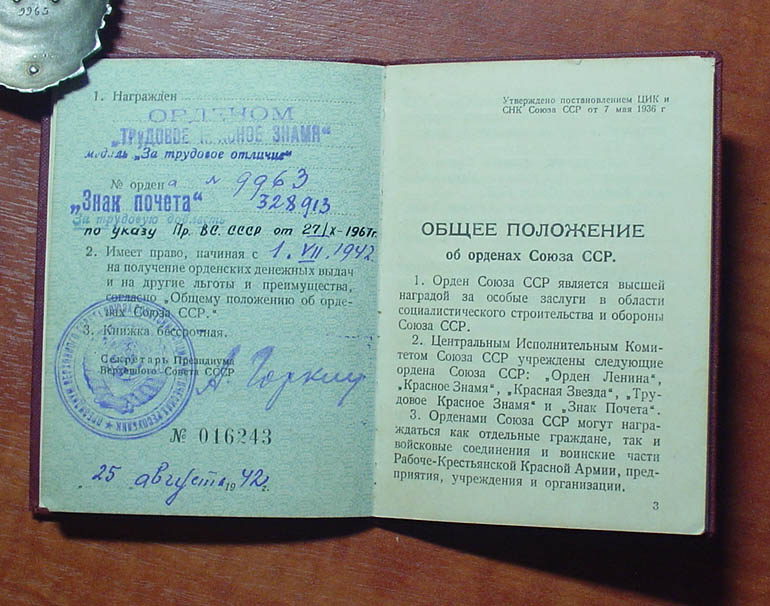 9963
1. Награжден
ОРДЕНОМ
„ТРУДОВОЕ КРАСНОЕ ЗНАМЯ“
медаль „За трудовое отличие“
№ ордена № 9963
„Знак почета“ 328913
За трудовую доблесть
по указу Пр. ВС. СССР от 27/X-1967г.
2. Имеет право, начиная с 1. VII. 1942
на получение орденских денежных выдач
и на другие льготы и преимущества,
согласно „Общему положению об орде-
нах Союза ССР.“
3. Книжка бессрочная.
Секретарь Президиума
Верховного Совета СССР
А. Горкин
№ 016243
25 августа 1942 г.
Утверждено постановлением ЦИК и
СНК Союза ССР от 7 мая 1936 г
ОБЩЕЕ ПОЛОЖЕНИЕ
об орденах Союза ССР.
1. Орден Союза ССР является высшей
наградой за особые заслуги в области
социалистического строительства и обороны
Союза ССР.
2. Центральным Исполнительным Коми-
тетом Союза ССР учреждены следующие
ордена Союза ССР: „Орден Ленина“,
„Красное Знамя“, „Красная Звезда“, „Тру-
довое Красное Знамя“ и „Знак Почета“.
3. Орденами Союза ССР могут награ-
ждаться как отдельные граждане, так и
войсковые соединения и воинские части
Рабоче-Крестьянской Красной Армии, пред-
приятия, учреждения и организации.
3